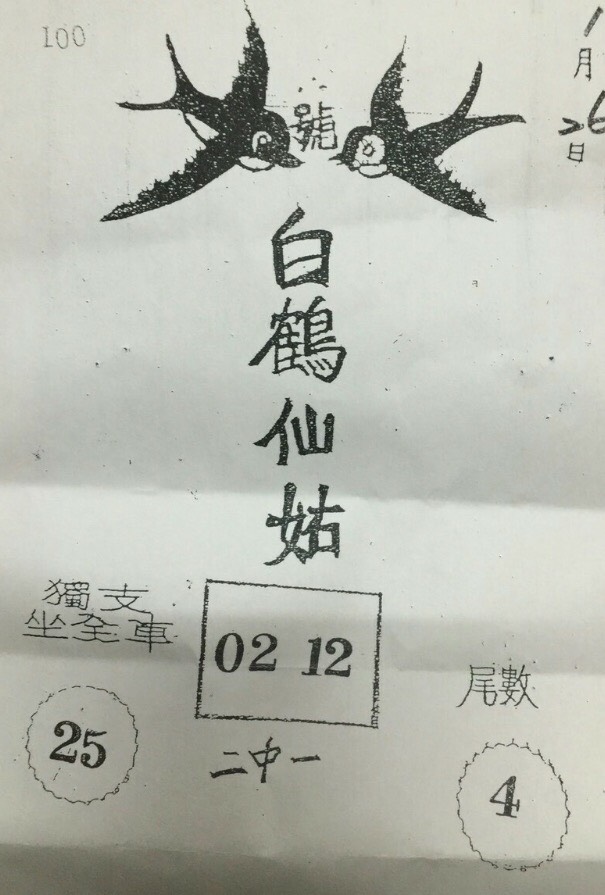 100
號
1
月
26
日
白
鶴
仙
姑
獨支
坐全車
25
02 12
二中一
尾數
4